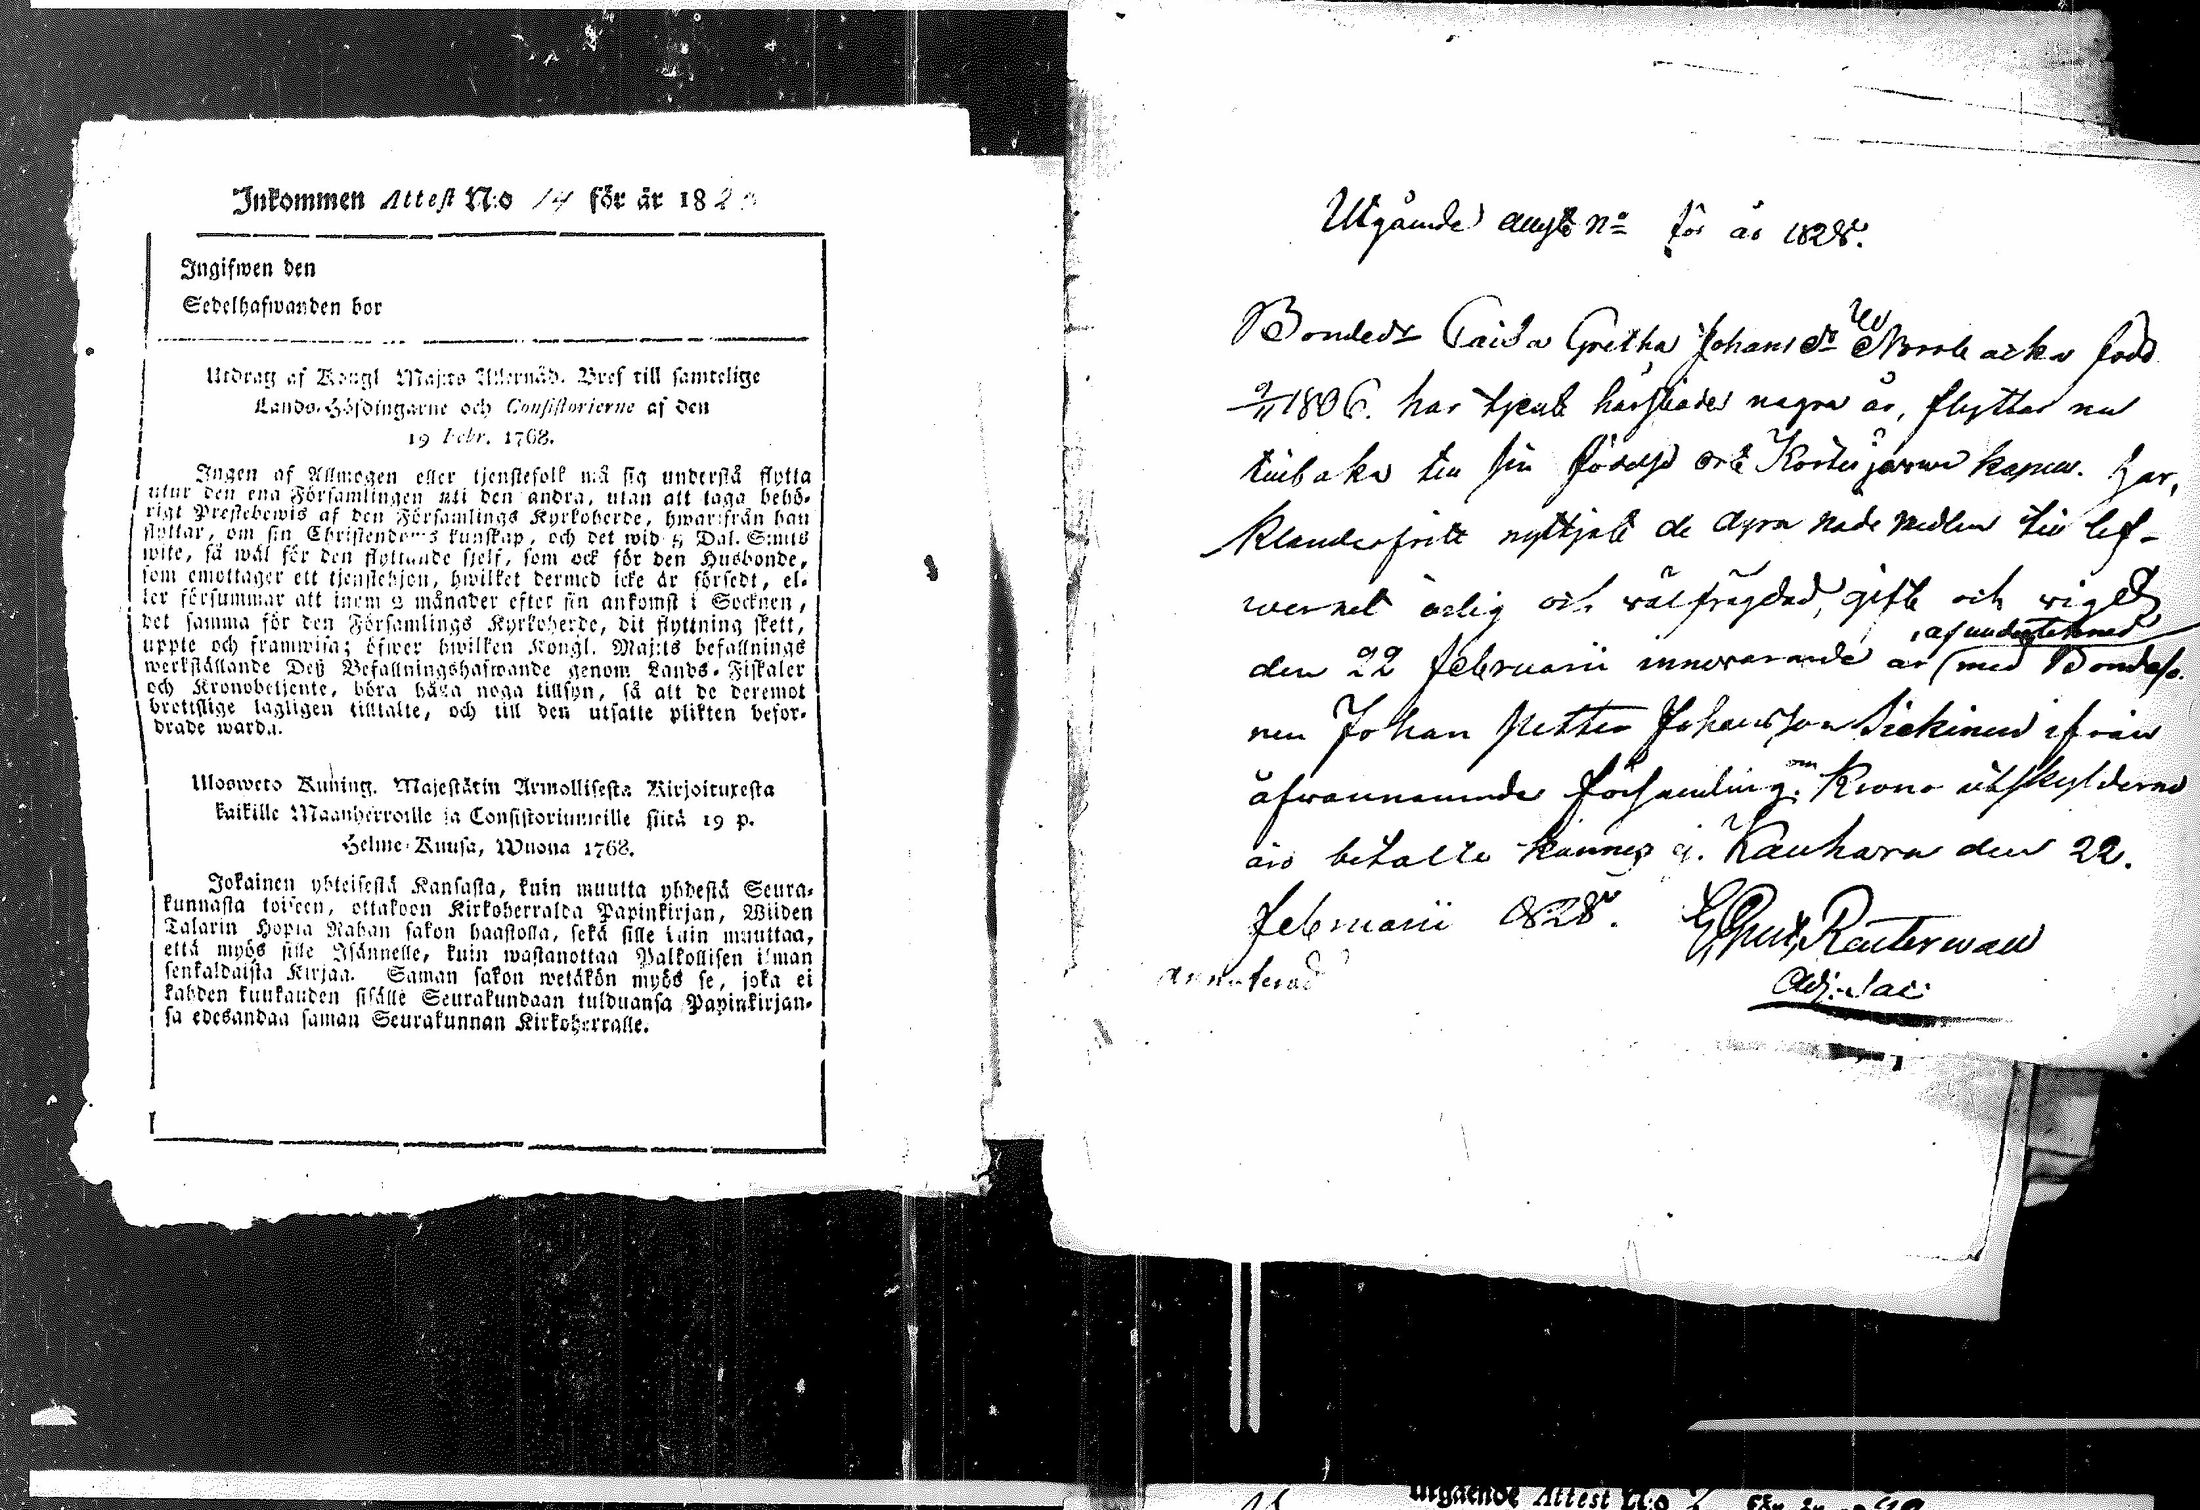 Inkommen Attest N:o 14 för år 182
Ingifwen den
Sedelhafwanden bor
Utdrag af Kongl Maj:ts Allernåd. Bref till samtelige
Lands-Höfdingarne och Consistorierne af den
19 Febr. 1768.
Ingen af Allmogen eller tjenstefolk må sig understå flytta
utur den ena Församlingen uti den andra, utan att taga behö-
rigt Prestebewis af den Församlings Kyrkoherde, hwarifrån han
flyttar, om sin Christendoms kunskap, och det wid 5 Dal. S:mts
wite, så wäl för den flyttande sjelf, som ock för den Husbonde,
som emottager ett tjenstehjon, hwilket dermed icke är försedt, el-
ler försummar att inom 2 månader efter sin ankomst i Socknen,
det samma för den Församlings Kyrkoherde, dit flyttning skett,
uppte och framwisa; öfwer hwilken Kongl. Maj:ts befallnings
werkställande Deß Befallningshafwande genom Lands-Fiskaler
och Kronobetjente, böra hafwa noga tillsyn, så att de deremot
brottslige lagligen tilltalte, och till den utsatte plikten befor-
drade warda.
Ulosweto Kuning. Majestätin Armollisesta Kirjoituxesta
kaikille Maanherroille ja Consistoriumeille siitä 19 p.
Helme-Kuusa, Wuona 1768.
Jokainen yhteisestä Kansasta, kuin muutta yhdestä Seura-
kunnasta toiseen, ottakoon Kirkoherralda Papinkirjan, Wiiden
Talarin Hopia Rahan sakon haastolla, sekä sille kuin muuttaa,
että myös sille Isännelle, kuin wastanottaa Palkollisen ilman
senkaldaista Kirjaa. Saman sakon wetäkön myös se, joka ei
kahden kuukauden sisälle Seurakundaan tulduansa Papinkirjan-
sa edesandaa saman Seurakunnan Kirkoherralle.
Utgående attest No för år 1828.
Bondedr Caisa Gretha Johansdr född
9/11 1806. har tjent härstädes några år, flyttar nu
tillbaka till sin födelse ort Kortesjärwi kapell. har,
klanderfritt nyttjat de dyra nåde medlen till lef-
wernet ärlig och wälfrägdad, gift och wigd
af undertecknad
den 22 februarii innewarande år (med Bondeso-
nen Johan Petter Johansson ifrån
åfwannämnde församling. om Krono utskylderne
äro betalte kännes ej. Kauhava den 22.
februarii 1828.
Reuterman
Adj: Sac:
annoterad
Utgående Attest N:o för år